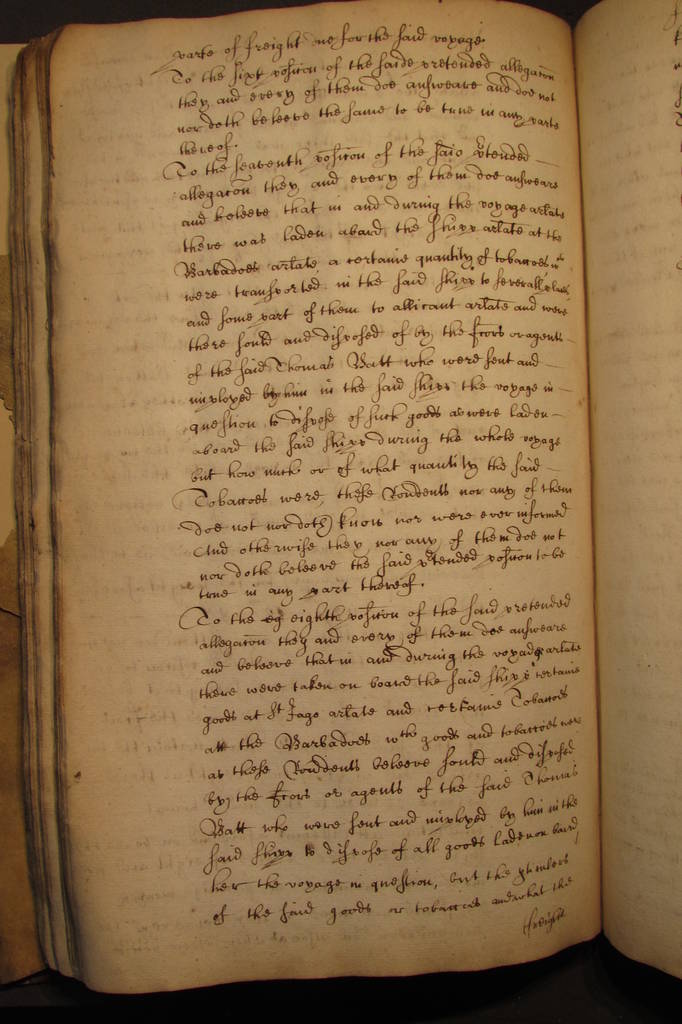 parte of freight one for the said voyage.
To the sixt position of the saide pretended allegacon
they and every of them doe answeare and doe not
nor doth beleeve the same to be true in any parte
thereof.
To the seaventh position of the said prtended
allegacon they and every of them doe answeare
and beleeve that in and during the voyage arlate
there was laden aboard the shipp arlate at the
Barbadoes arlate a certaine quantity of tobaccoes wch
were transported in the said shipp to severall places
and some part of them to allicant arlate and were
there sould and disposed of by the ffcors or agents
of the said Thomas Batt who were sent and
imployed by him in the said shipp the voyage in
question to dispose of such goods as were laden
aboard the said shipp during the whole voyage
but how much or of what quantity the said
Tobaccoes were, these Rondents nor any of them
doe not nor doth know nor were ever informed
And otherwise they nor any of them doe not
nor doth beleeve the said prtended position to be
true in any part thereof.
To the eig eighth position of the said pretended
allegacon they and every of them doe answeare
and beleeve that in and during the voyage arlate
there were taken on board the said shipp certaine
goods at St Jago arlate and certaine Tobaccoes
att the Barbadoes wch goods and tobaccoes were
as these Rondents beleeve sould and disposed
by the ffcors or agents of the said Thomas
Batt who were sent and imployed by him in the
said shipp to dispose of all goods laden on board
her the voyage in question, but the
of the said goods or tobaccoes and what the
freight